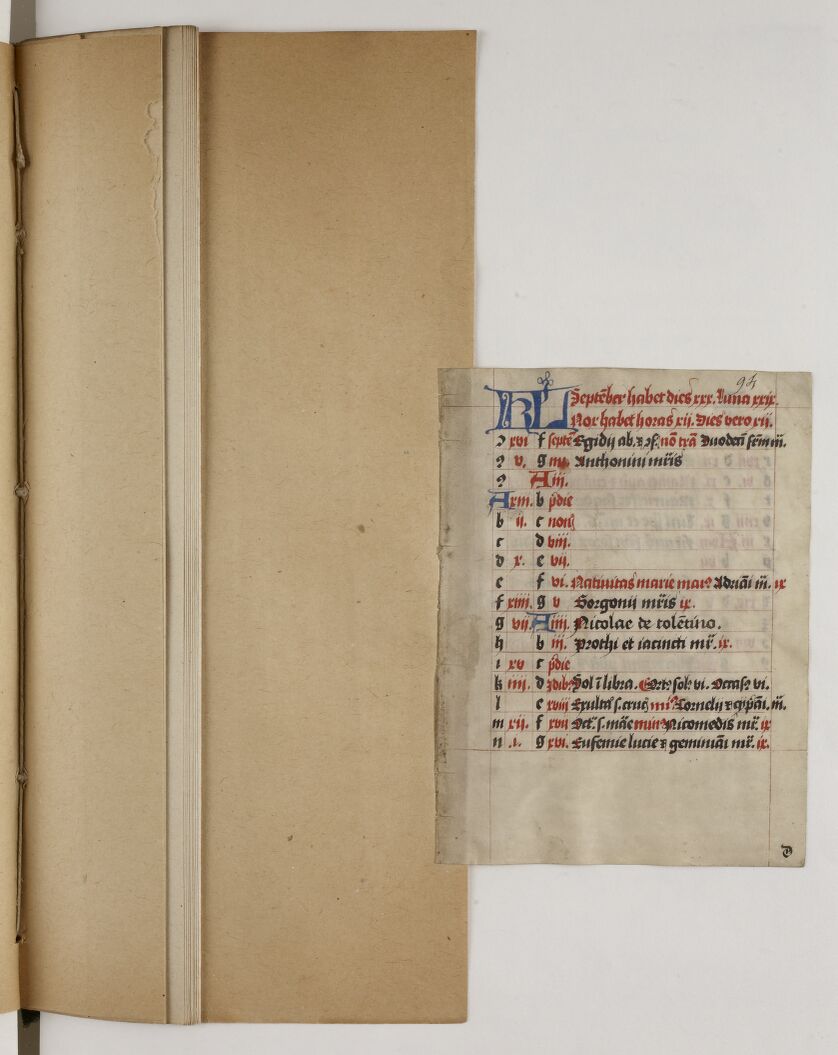 94
KL Septēber habet dies xxx. Luna xxix.
Nox habet horas xii. Dies vero xii.
xvi f septē Egidij ab. ⁊ ɔf. nō trā Duodeci fr̄m m̄.
? v. g iiii. Anthonini mr̄is
? A iii.
A xiii. b pdie
b ii. c non
c d viii.
d x. e vii.
e f vi. Natiuitas marie maiꝰ Adriāi m̄. ix
f xviii. g v Gorgonij mr̄is ix.
g vii. A iiii. Nicolae de tolētino.
h b iii. Prothi et iacincti mr̄. ix.
i xv c pdie
k iiii. d Idib Sol ī libra. Ortꝰ sol vi. Occasꝰ vi.
l e xviii Exultꝰ s. cruc miꝰ Cornelij ⁊ cypāi. m̄.
m xii. f xvii Oct. s. māe minꝰ Nicomedis mr̄. ix
n .i. g xvi. Eufemie lucie ⁊ geminiāi mr̄. ix.